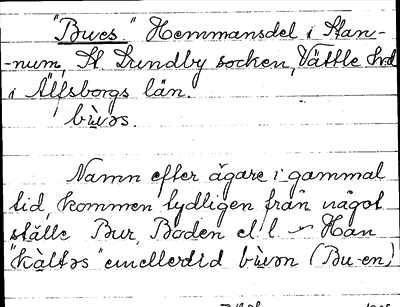 "Bues." Hemmansdel i Stan-
-num, St. Lundby socken, Vättle hd
i Älfsborgs län.
bùəs.
Namn efter ägare i gammal
tid, kommen tydligen från något
ställe Bur, Boden el l - Han
"kàltəs" emellertid bùən (Bu-en)